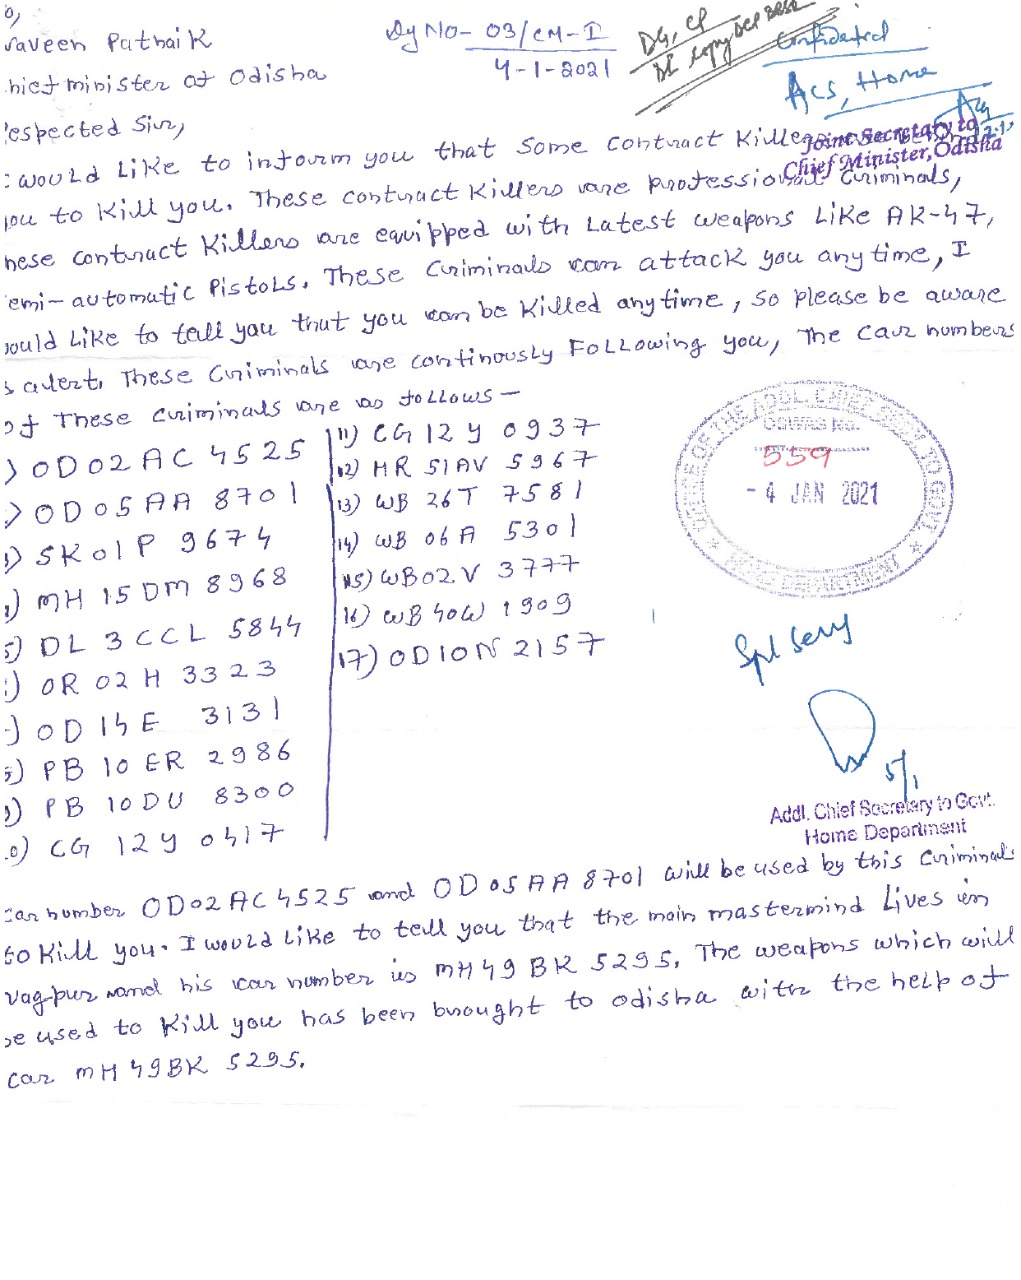 o,
raveen Patnaik
hief minister of Odisha
Dy No- 03/CM-I
4-1-2021
DG, CP
Confidential
ACS, Home
Joint Secretary to
Chief Minister, Odisha
espected Sir,
would Like to inform you that Some contract Killers
you to Kill you. These contract Killers are professional Criminals,
hese contract Killers are equipped with Latest weapons Like AK-47,
emi-automatic Pistols. These Criminals can attack you any time, I
ould Like to tell you that you can be Killed anytime, so please be aware
s alert. These Criminals are continously Following you, The car numbers
of These criminals are as follows -
) OD02 AC 4525
) OD05 AA 8701
) SK01P 9674
) MH 15 DM 8968
5) DL 3 CCL 5844
) OR 02 H 3323
) OD 14 E 3131
) PB 10 ER 2986
) PB 10 DU 8300
0) CG 12 Y 0417
11) CG 12 Y 0937
12) HR 51AV 5967
13) WB 26T 7581
14) WB 06A 5301
15) WB02V 3777
16) WB 40W 1909
17) OD10N 2157
OFFICE OF THE ADDL. CHIEF SECY. TO GOVT.
OSWAS No.
559
- 4 JAN 2021
HOME DEPARTMENT
Spl Secy
5/1
Addl. Chief Secretary to Govt.
Home Department
car number OD02 AC 4525 and OD 05 AA 8701 will be used by this Criminals
to Kill you. I would Like to tell you that the main mastermind Lives in
Nagpur and his car number is MH 49 BK 5295. The weapons which will
be used to Kill you has been brought to odisha with the help of
car MH 49BK 5295.